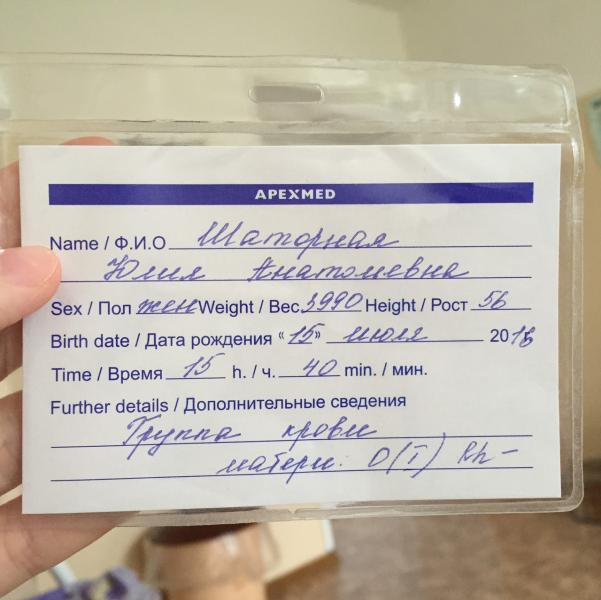 APEXMED
Name / Ф.И.О Шаторная
Юлия Анатолиевна
Sex / Пол жен Weight / Вес 3990 Height / Рост 56
Birth date / Дата рождения «15» июля 2016
Time / Время 15 h. / ч. 40 min. / мин.
Further details / Дополнительные сведения
Группа крови
матери: O(I) Rh-